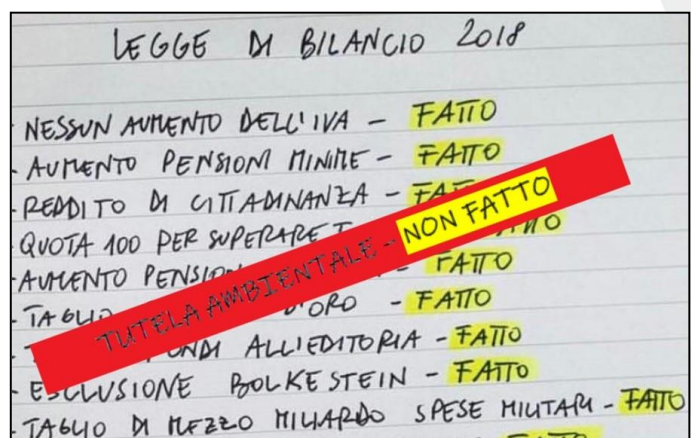 LEGGE DI BILANCIO 2018
- NESSUN AUMENTO DELL'IVA - FATTO
- AUMENTO PENSIONI MINIME - FATTO
- REDDITO DI CITTADINANZA - FAT
- QUOTA 100 PER SUPERARE
- AUMENTO PENSION - FATTO
- TAGLIO D'ORO - FATTO
TUTELA AMBIENTALE - NON FATTO
FONDI ALL'EDITORIA - FATTO
- ESCLUSIONE BOLKESTEIN - FATTO
- TAGLIO DI MEZZO MILIARDO SPESE MILITARI - FATTO